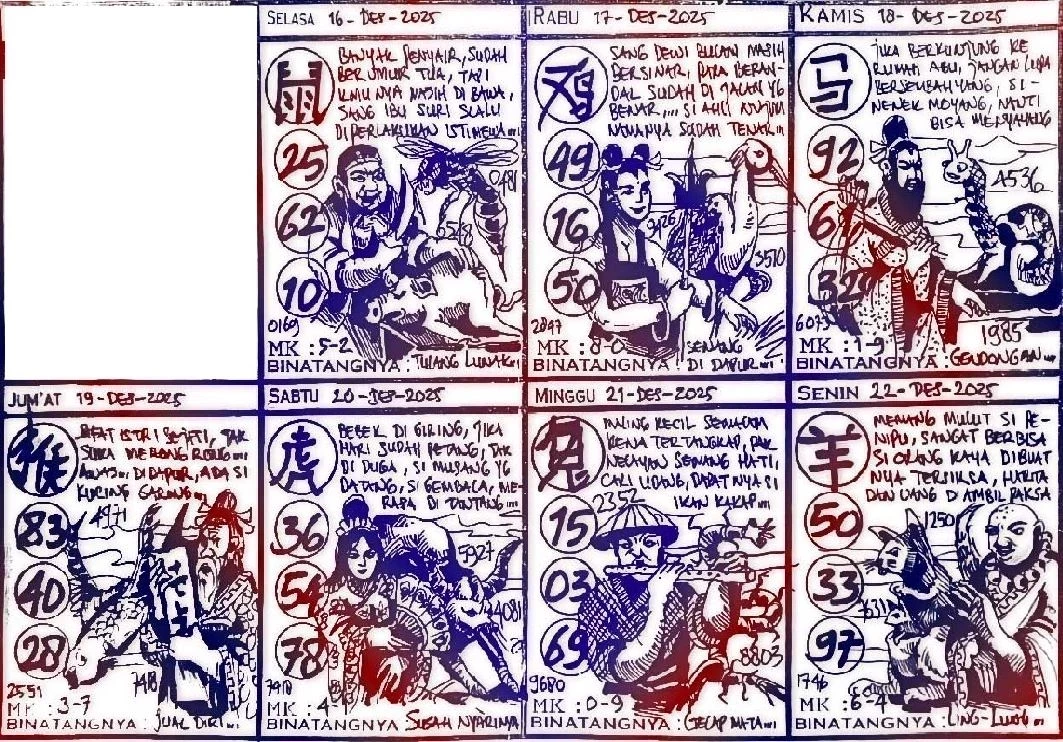 SELASA 16-DES-2025
鼠
BANYAK PENYAIR, SUDAH
BERUMUR TUA, TAPI
ILMUNYA MASIH DI BAWA,
SANG IBU SURI SLALU
DIPERLAKUKAN ISTIMEWA...
25
62
10
0481
6548
0169
MK : 5-2
BINATANGNYA : TULANG LUNAK...
RABU 17-DES-2025
鸡
SANG DEWI BULAN MASIH
BERSINAR, PARA BERAN-
DAL SUDAH DI JALAN YG
BENAR,... SI AHLI NUJUM
NAMANYA SUDAH TENAR...
49
16
50
3426
3510
2897
MK : 8-0
BINATANGNYA : SENANG
DI DAPUR...
KAMIS 18-DES-2025
马
JIKA BERKUNJUNG KE
RUMAH ABU, JANGAN LUPA
BERSEMBAHYANG, SI-
NENEK MOYANG, NANTI
BISA
92
32
A536
1985
MK : 1-9
BINATANGNYA : GENDONGAN...
JUM'AT 19-DES-2025
猴
SUKA MERONG RONG...
DI DAPUR, ADA SI
KUCING GARONG...
83
40
28
4971
2551
MK : 3-7
BINATANGNYA : JUAL DIRI...
SABTU 20-DES-2025
虎
BEBEK DI GIRING, JIKA
HARI SUDAH PETANG, TAK
DI DUGA, SI MUSANG YG
DATANG, SI GEMBALA, ME-
RASA DI TANTANG...
36
54
78
5927
4081
7918
MK : 4-
BINATANGNYA : SUSAH NYARINYA
MINGGU 21-DES-2025
兔
MALING KECIL SEMACAM
KENA TERTANGKAP, PAK
NELAYAN SENANG HATI,
CARI UDANG, DAPATNYA SI
IKAN KAKAP...
2352
15
03
69
8803
9680
MK : 0-9
BINATANGNYA : GELAP MATA...
SENIN 22-DES-2025
羊
MEMANG MULUT SI PE-
NIPU, SANGAT BERBISA
SI ORANG KAYA DIBUAT
NYA TERSIKSA, HARTA
DAN UANG DI AMBIL PAKSA
50
33
97
1250
1746
MK : 6-4
BINATANGNYA : LING-LUNG...